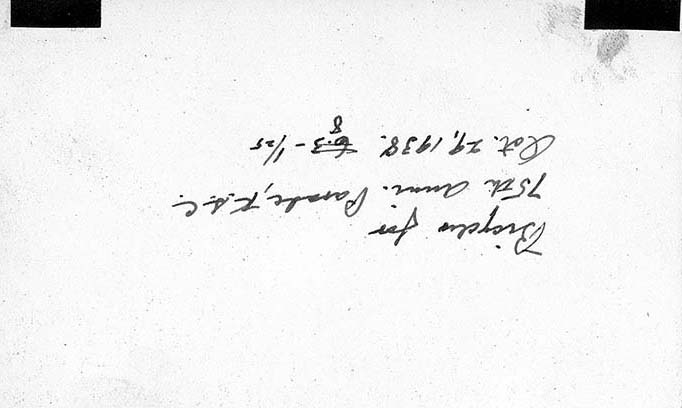 Bicycles for
75th Anni. Parade, K.S.C.
Oct. 29, 1938. 6.3 - 1/25
8